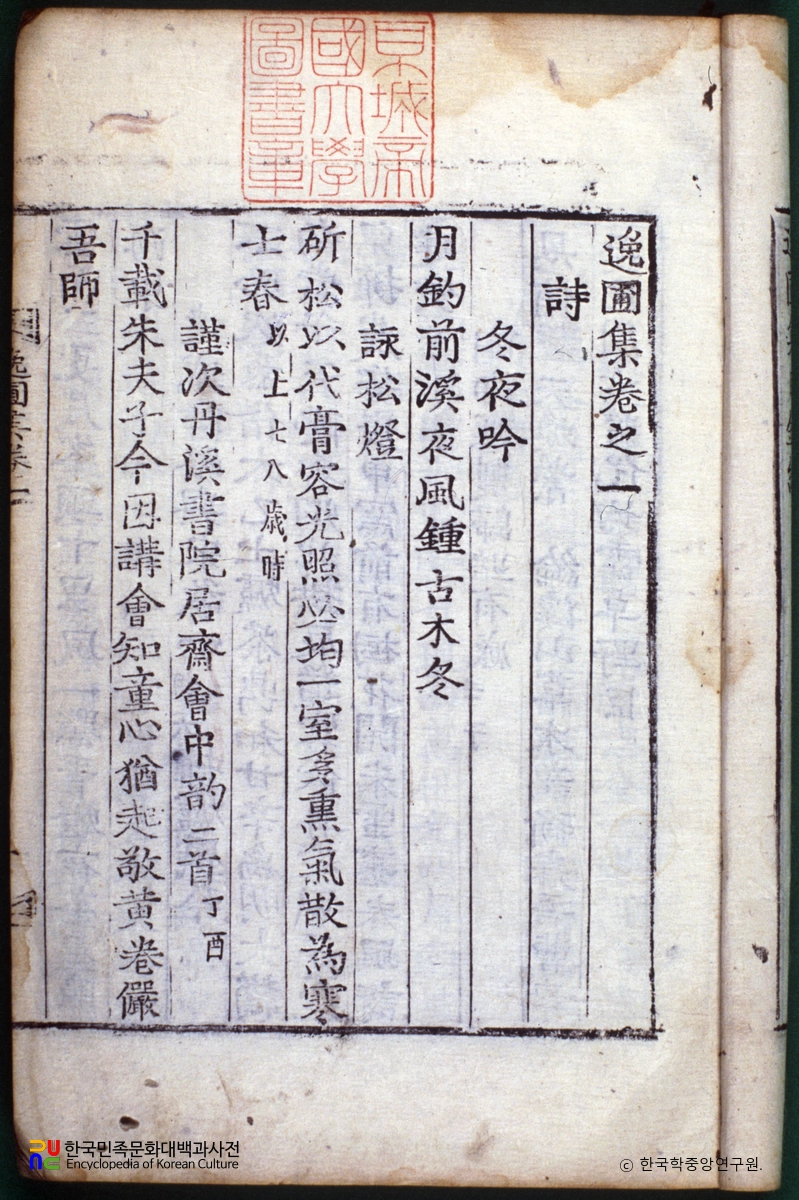 京城帝
國大學
圖書章
逸圃集卷之一
詩
冬夜吟
月釣前溪夜風鍾古木冬
詠松燈
斫松以代膏容光照必均一室多熏氣散為寒
士春 以上七八歲時
謹次丹溪書院居齋會中韵二首 丁酉
千載朱夫子今因講會知童心猶起敬黃卷儼
吾師
逸圃集卷一
한국민족문화대백과사전
Encyclopedia of Korean Culture
© 한국학중앙연구원.